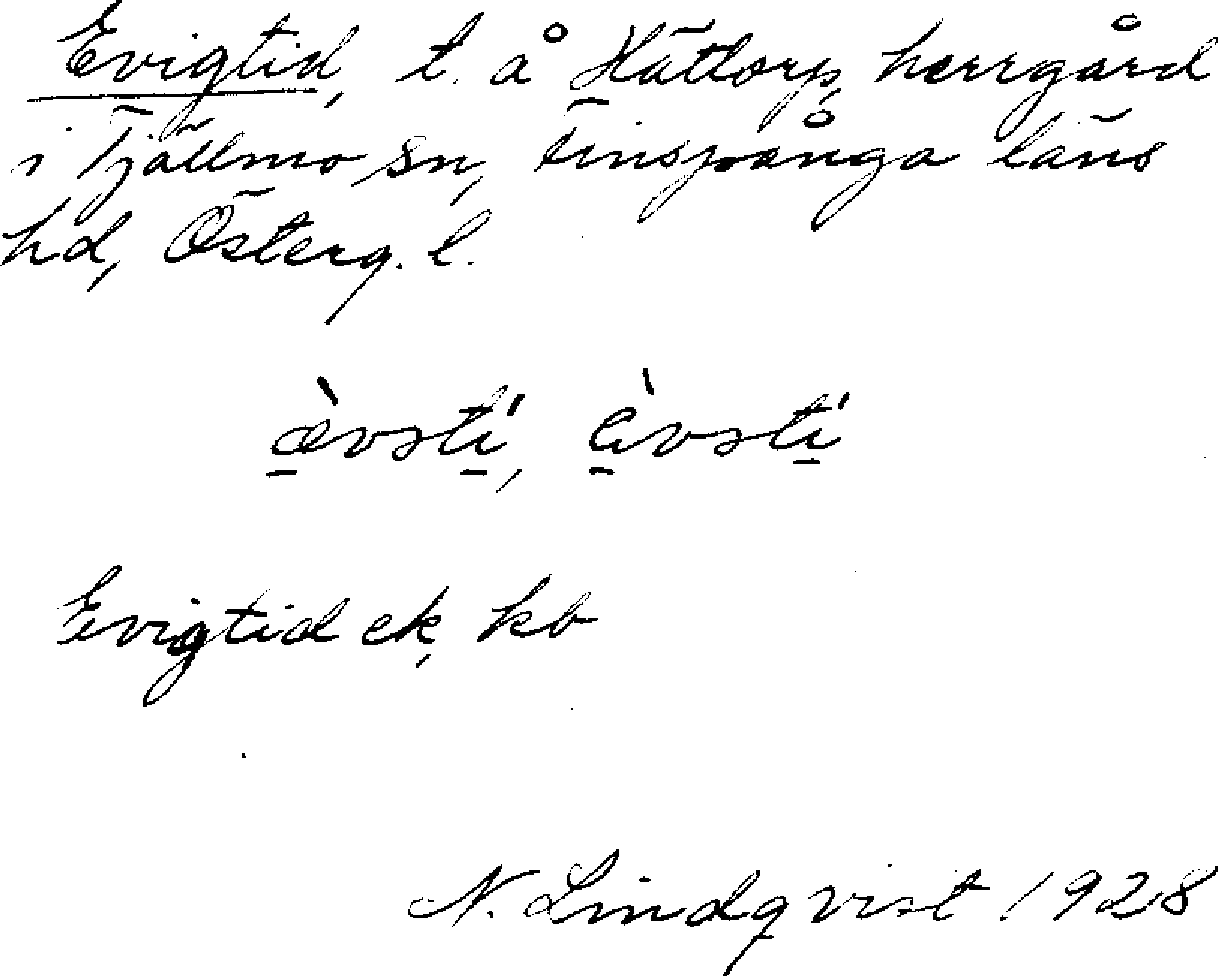 Evigtid, t. å Hättorp, herrgård
i Tjällmo sn, Finspånga läns
hd, Österg. l.
æ̀vstí, èvstí
Evigtid ek, kb
N. Lindqvist 1928